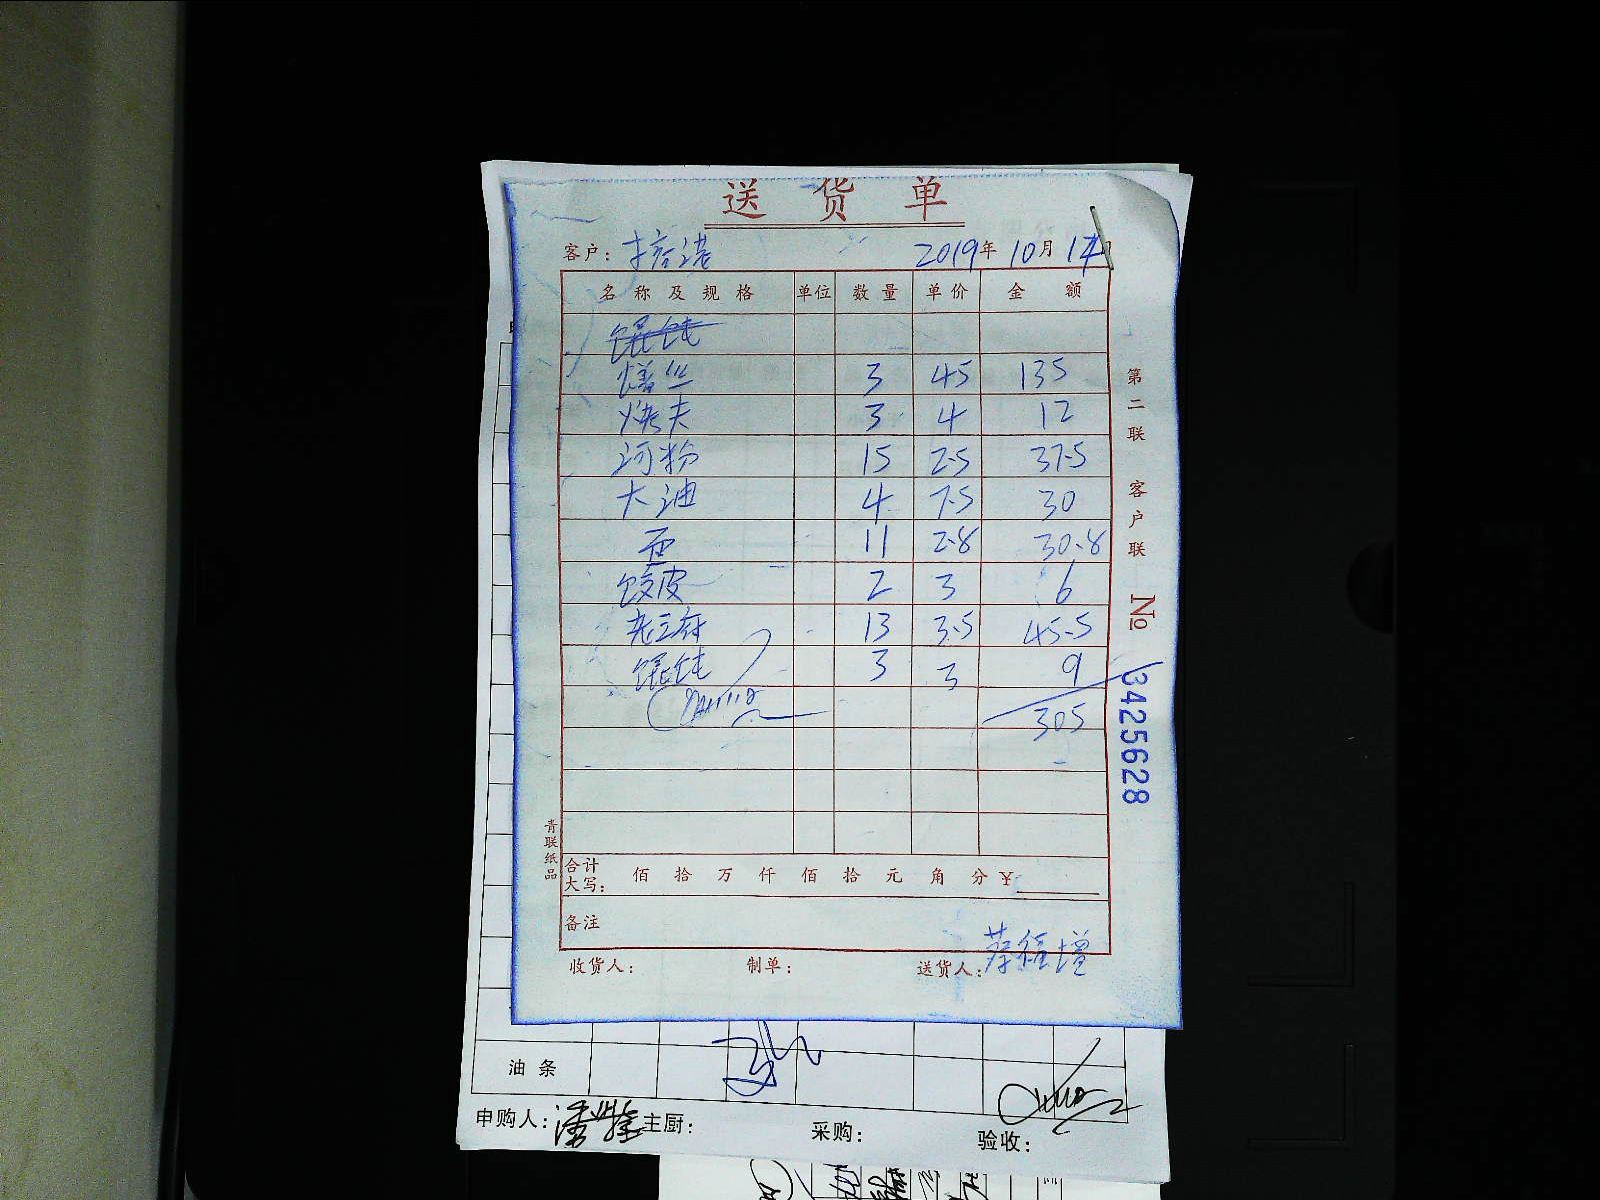 送货单
客户: 2019年10月17日
名称及规格 单位 数量 单价 金额
馄饨
丝 3 45 135
烤夫 3 4 12
河粉 15 2.5 37.5
大油 4 7.5 30
百 11 2.8 30.8
饺皮 2 3 6
老豆腐 13 3.5 45.5
馄饨 3 3 9
305
合计大写: 佰 拾 万 仟 佰 拾 元 角 分 ¥
备注
收货人: 制单: 送货人:
第二联 客户联 №
3425628
青联纸品
油条
申购人: 主厨: 采购: 验收: